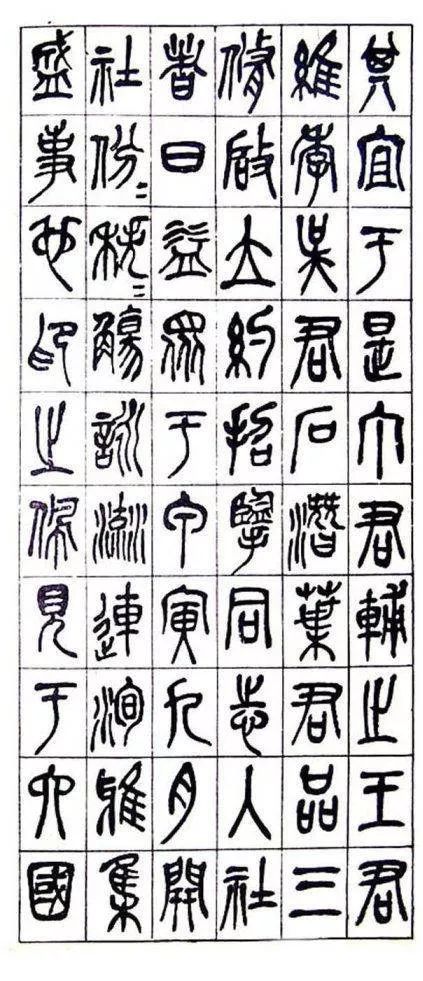 其宜于是丁君輔之王君
維季吳君石潛葉君品三
脩啟立約招擥同志入社
者日益眾于甲寅九月開
社份〻秩〻觴詠流連洵雅集
盛事也印之佩見于六國